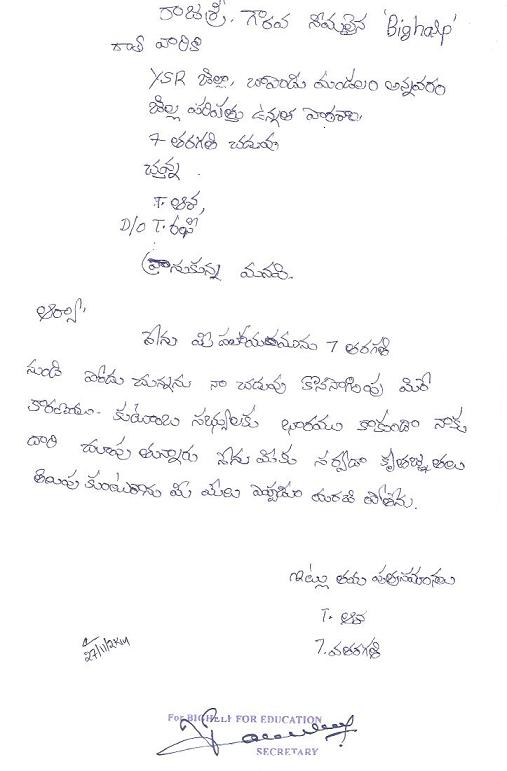 రాజశ్రీ. గౌరవ నీయులైన 'Bighalp'
గారి వారికి
YSR జిల్లా, మండలం అన్నవరం
జిల్ల పరిషత్తు ఉన్నత పాఠశాల,
7 తరగతి చదువు
చున్న.
T. ఆశ,
D/o T. రఫీ
వ్రాసుకున్న మనవి.
ఆర్యా,
నేను మీ సహాయమును 7 తరగతి
నుండి చున్నాను నా చదువు కొనసాగింపు మీరే
కారణము. కుటుంబ సభ్యులకు భారము కాకుండా నాకు
దారి చూపు తున్నారు నేను మీకు సర్వదా కృతజ్ఞతలు
తెలుపు కుంటున్నాను మీ మేలు ఎప్పటికి మరచి పోలేను.
ఇట్లు తమ
T. ఆశ
7. వతరగతి
27/11/2014
For BIGHELP FOR EDUCATION
SECRETARY